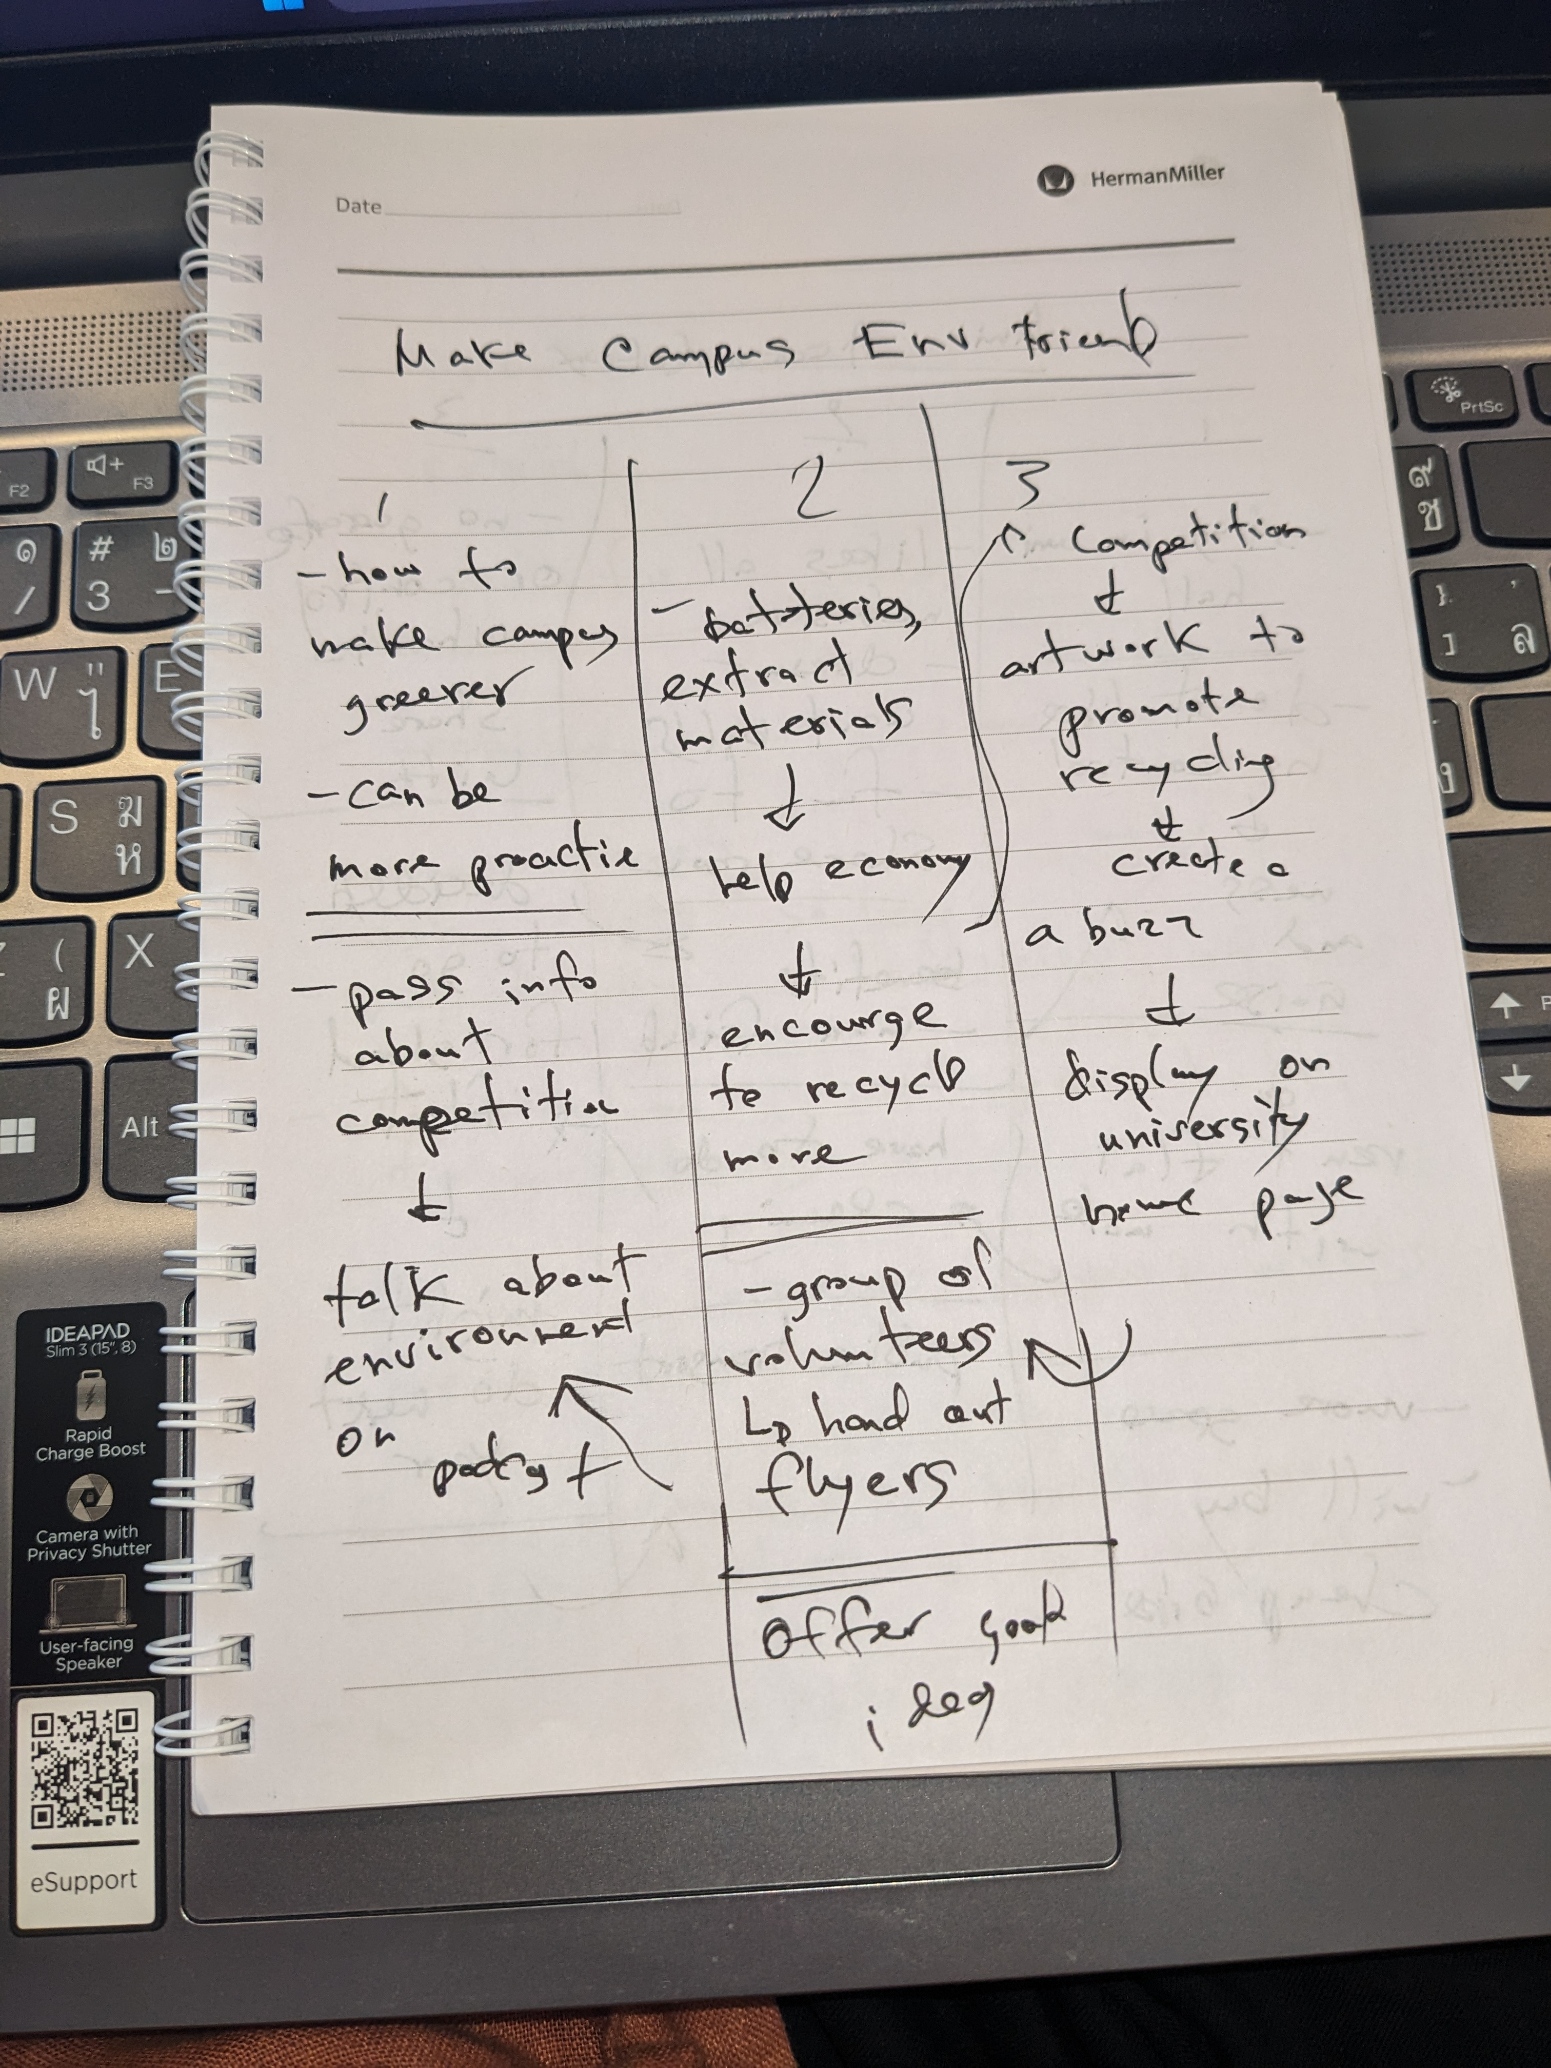 HermanMiller
Date
Make Campus Env friend
1
- how to
make campus
greener
- can be
more proactie
- pass info
about
competition
talk about
environment
on
2
- batteries,
extract
materials
help economy
encourge
to recycle
more
- group of
volunteers
hand out
flyers
offer good
idea
3
Competition
artwork to
promote
recycling
create a
a buzz
display on
university
home page
F2
F3
PrtSc
#
3
/
W
E
S
X
Alt
IDEAPAD
Slim 3 (15", 8)
Rapid
Charge Boost
Camera with
Privacy Shutter
User-facing
Speaker
eSupport